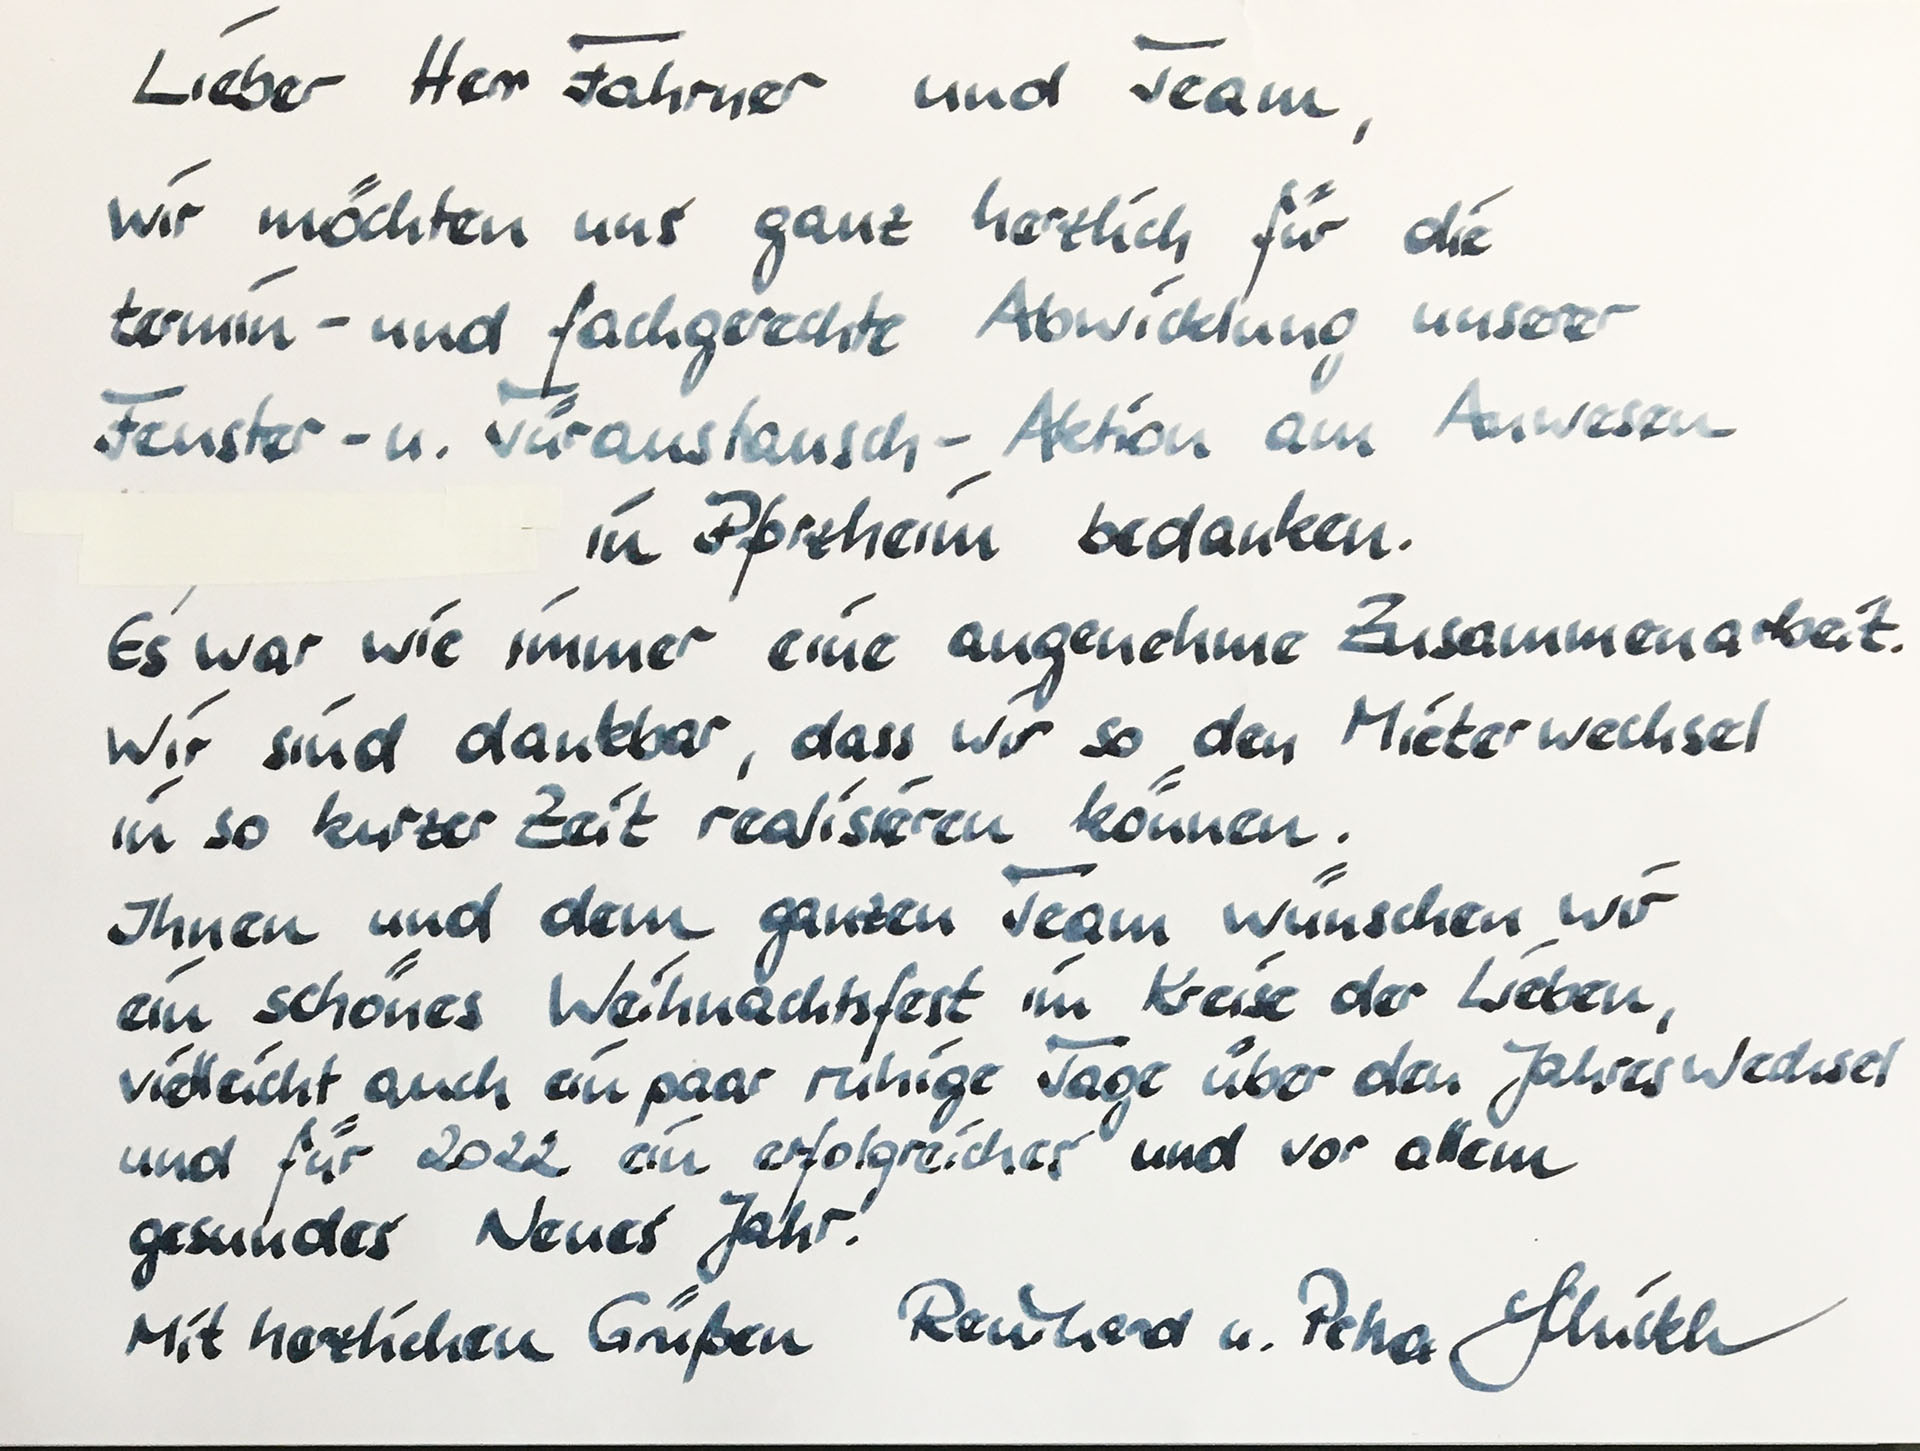 Lieber Herr Fahrner und Team,
wir möchten uns ganz herzlich für die
termin- und fachgerechte Abwicklung unserer
Fenster- u. Türaustausch- Aktion am Anwesen
in Pforzheim bedanken.
Es war wie immer eine angenehme Zusammenarbeit.
Wir sind dankbar, dass wir so den Mieterwechsel
in so kurzer Zeit realisieren können.
Ihnen und dem ganzen Team wünschen wir
ein schönes Weihnachtsfest im Kreise der Lieben,
vielleicht auch ein paar ruhige Tage über den Jahreswechsel
und für 2022 ein erfolgreiches und vor allem
gesundes Neues Jahr.
Mit herzlichen Grüßen Reinhard u. Petra